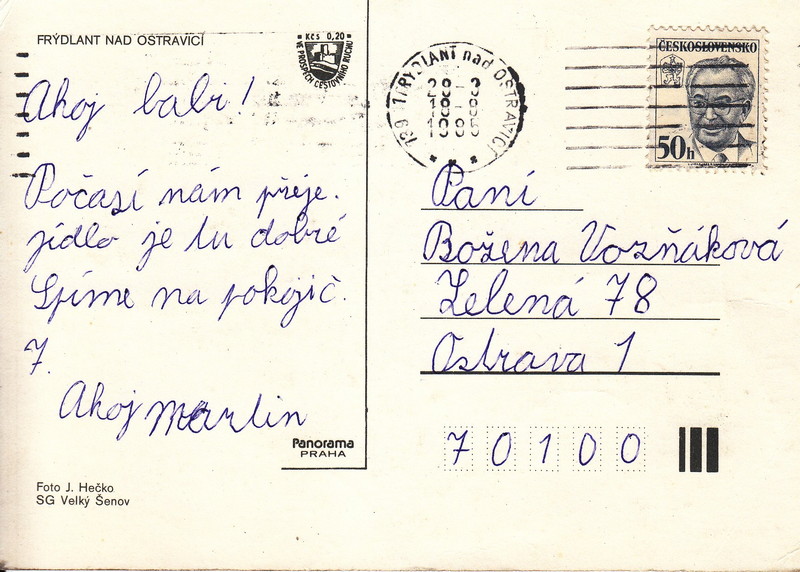 FRÝDLANT NAD OSTRAVICÍ
Kčs 0,20
VE PROSPĚCH CESTOVNÍHO RUCHU
Ahoj babi!
Počasí nám přeje.
jídlo je tu dobré
Spíme na pokojíč.
7.
Ahoj Martin
Panorama
PRAHA
Foto J. Hečko
SG Velký Šenov
739 11 FRÝDLANT nad OSTRAVICÍ
ČESKOSLOVENSKO
50h
Paní
Božena Vozňáková
Zelená 78
Ostrava 1
70100